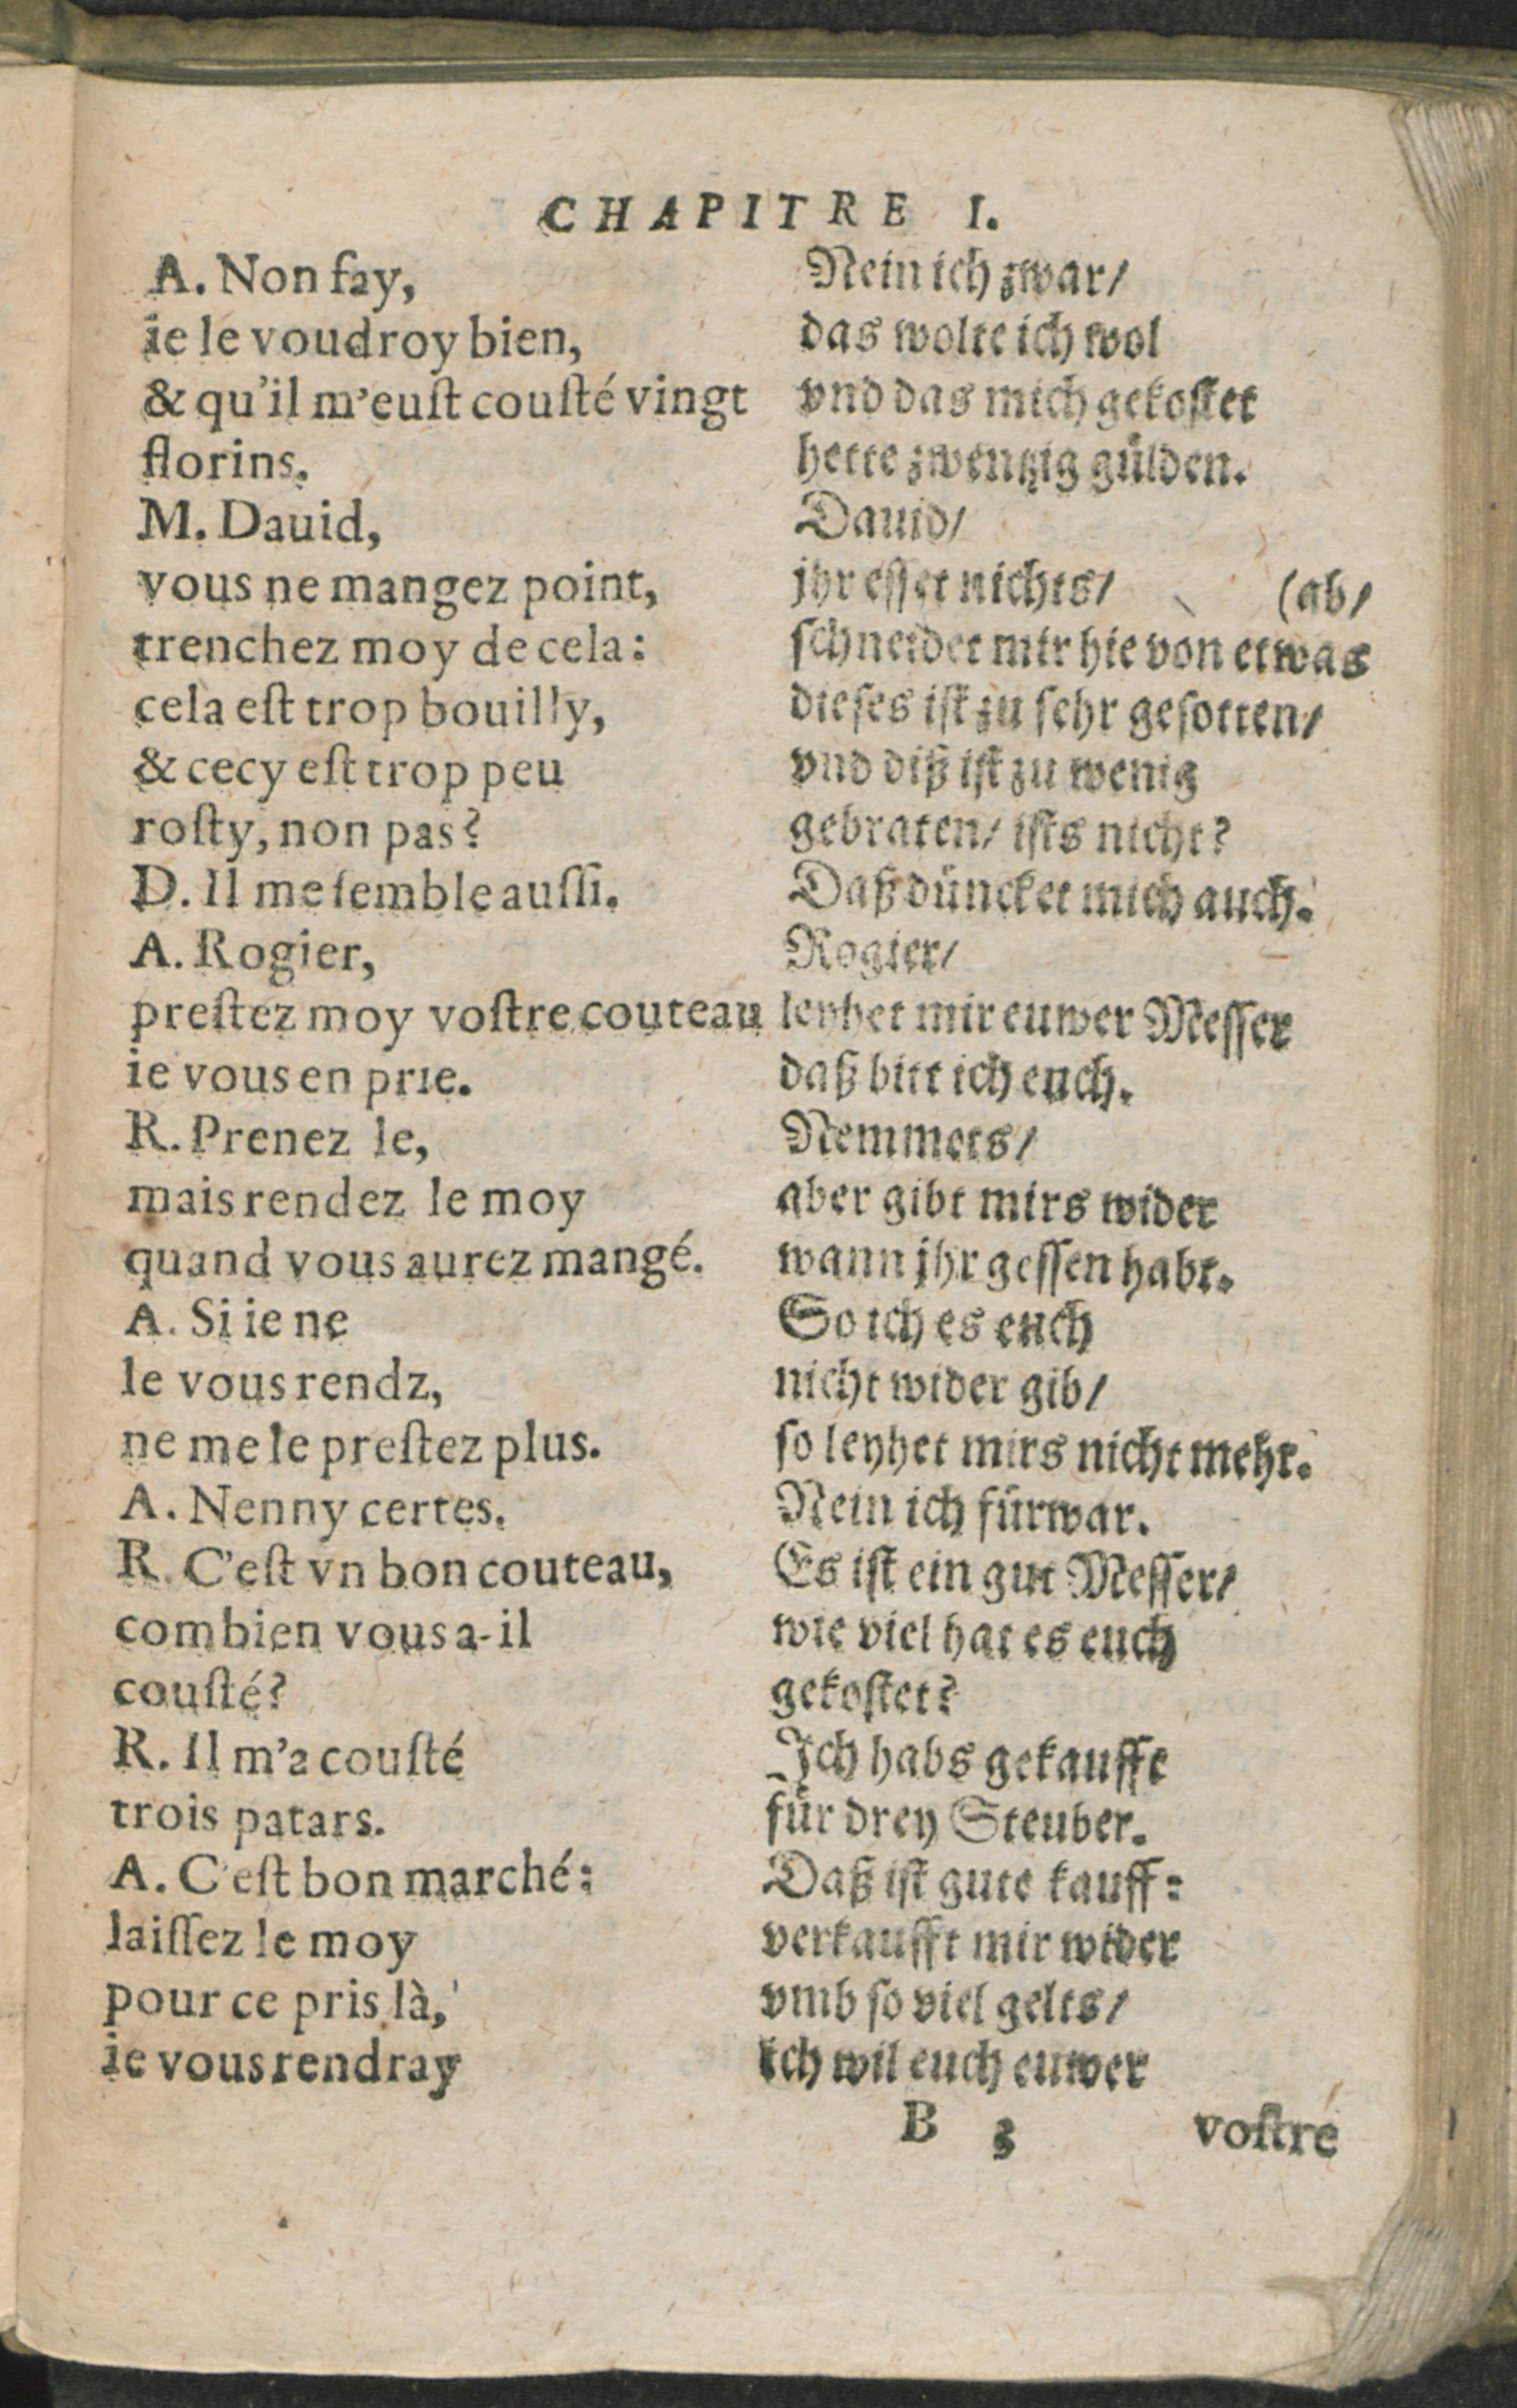 CHAPITRE I.
A. Non fay,
ie le voudroy bien,
& qu'il m'euſt couſté vingt
florins.
M. Dauid,
vous ne mangez point,
trenchez moy de cela:
cela eſt trop bouilly,
& cecy eſt trop peu
roſty, non pas?
D. Il me ſemble auſſi.
A. Rogier,
preſtez moy voſtre couteau
ie vous en prie.
R. Prenez le,
mais rendez le moy
quand vous aurez mangé.
A. Si ie ne
le vous rendz,
ne me le preſtez plus.
A. Nenny certes.
R. C'eſt vn bon couteau,
combien vous a-il
couſté?
R. Il m'a couſté
trois patars.
A. C'eſt bon marché:
laiſſez le moy
pour ce pris là,
ie vous rendray
Nein ich zwar/
das wolte ich wol
vnd das mich gekoſtet
hette zwentzig gülden.
Dauid/
jhr eſſet nichts/ (ab/
ſchneidet mir hie von etwas
dieſes iſt zu ſehr geſotten/
vnd diß iſt zu wenig
gebraten/ iſts nicht?
Daß düncket mich auch.
Rogier/
leyhet mir euwer Meſſer
daß bitt ich euch.
Nemmets/
aber gibt mirs wider
wann jhr geſſen habt.
So ich es euch
nicht wider gib/
ſo leyhet mirs nicht mehr.
Nein ich fürwar.
Es iſt ein gut Meſſer/
wie viel hat es euch
gekoſtet?
Ich habs gekaufft
für drey Steuber.
Daß iſt gute kauff:
verkaufft mir wider
vmb ſo viel gelts/
ich wil euch euwer
B 3 voſtre